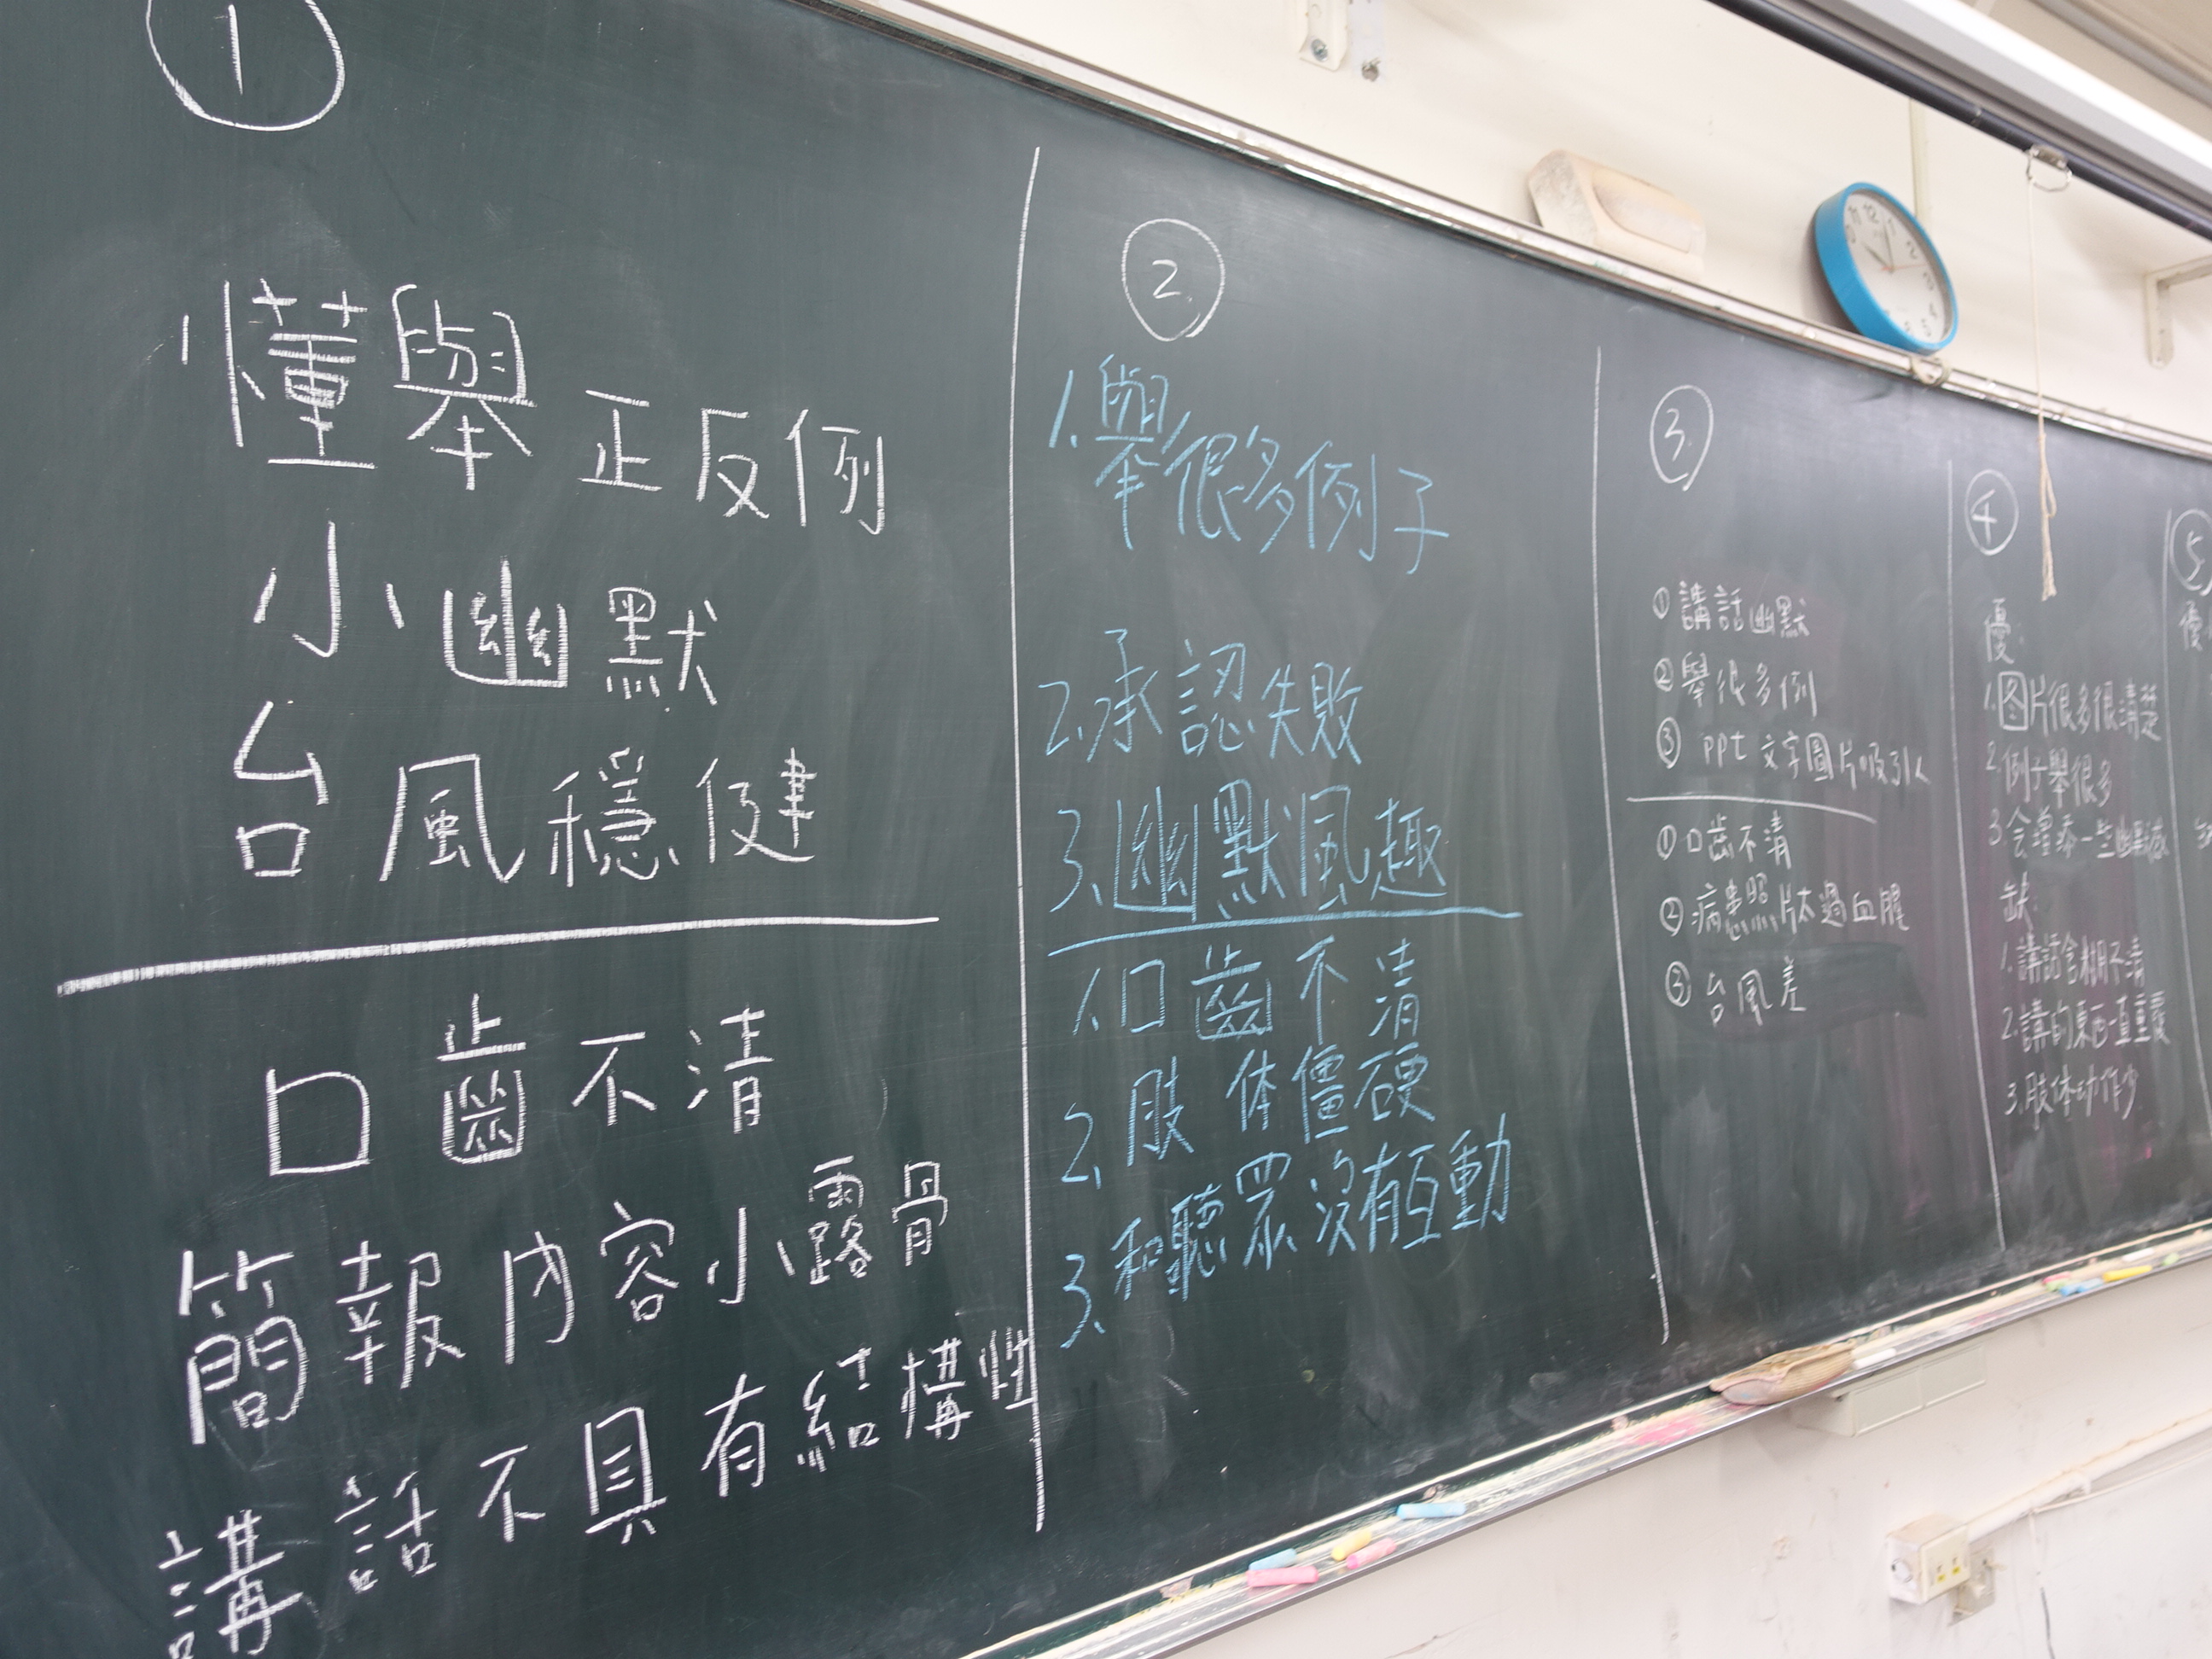 ①
懂舉正反例
小幽默
台風穩健
口齒不清
簡報內容小露骨
講話不具有結構性
②
1.舉很多例子
2.承認失敗
3.幽默風趣
1.口齒不清
2.肢体僵硬
3.和聽眾沒有互動
③
①講話幽默
②舉很多例
③ppt文字圖片吸引人
①口齒不清
②病患照片太過血腥
③台風差
④
優:
1.图片很多很清楚
2.例子舉很多
3.会增添一些幽默感
缺
1.講話含糊不清
2.講的東西一直重覆
3.肢体动作少
⑤
優